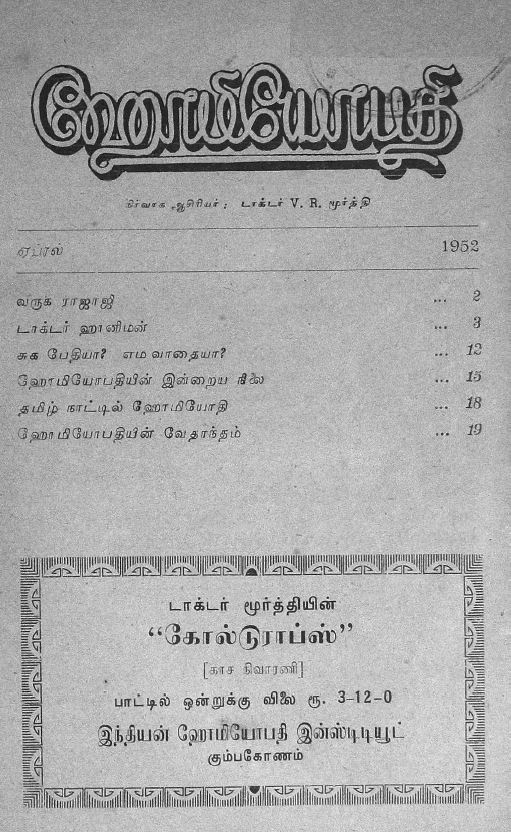 ஹோமியோபதி
நிர்வாக ஆசிரியர் : டாக்டர் V. R. மூர்த்தி
ஏப்ரல் 1952
வருக ராஜாஜி ... 2
டாக்டர் ஹானிமன் ... 3
சுக பேதியா? எம வாதையா? ... 12
ஹோமியோபதியின் இன்றைய நிலை ... 15
தமிழ் நாட்டில் ஹோமியோதி ... 18
ஹோமியோபதியின் வேதாந்தம் ... 19
டாக்டர் மூர்த்தியின்
“கோல்டுராப்ஸ்”
[காச நிவாரணி]
பாட்டில் ஒன்றுக்கு விலை ரூ. 3-12-0
இந்தியன் ஹோமியோபதி இன்ஸ்டிடியூட்
கும்பகோணம்